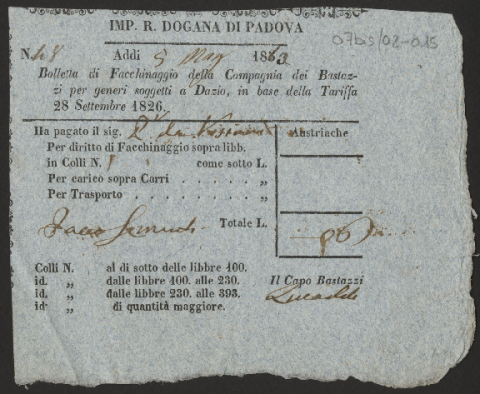 IMP. R. DOGANA DI PADOVA
07bis/02-015
N. 48 Addì 5 Mag 1853
Bolletta di Facchinaggio della Compagnia dei Bastaz-
zi per generi soggetti a Dazio, in base della Tariffa
28 Settembre 1826.
Ha pagato il sig.
Austriache
Per diritto di Facchinaggio sopra libb.
in Colli N. 1 come sotto L.
Per carico sopra Carri . . . . . . „
Per Trasporto . . . . . . . . . „
Totale L.
Colli N. al di sotto delle libbre 100.
id. „ dalle libbre 100. alle 230.
id. „ dalle libbre 230. alle 393.
id. „ di quantità maggiore.
Il Capo Bastazzi